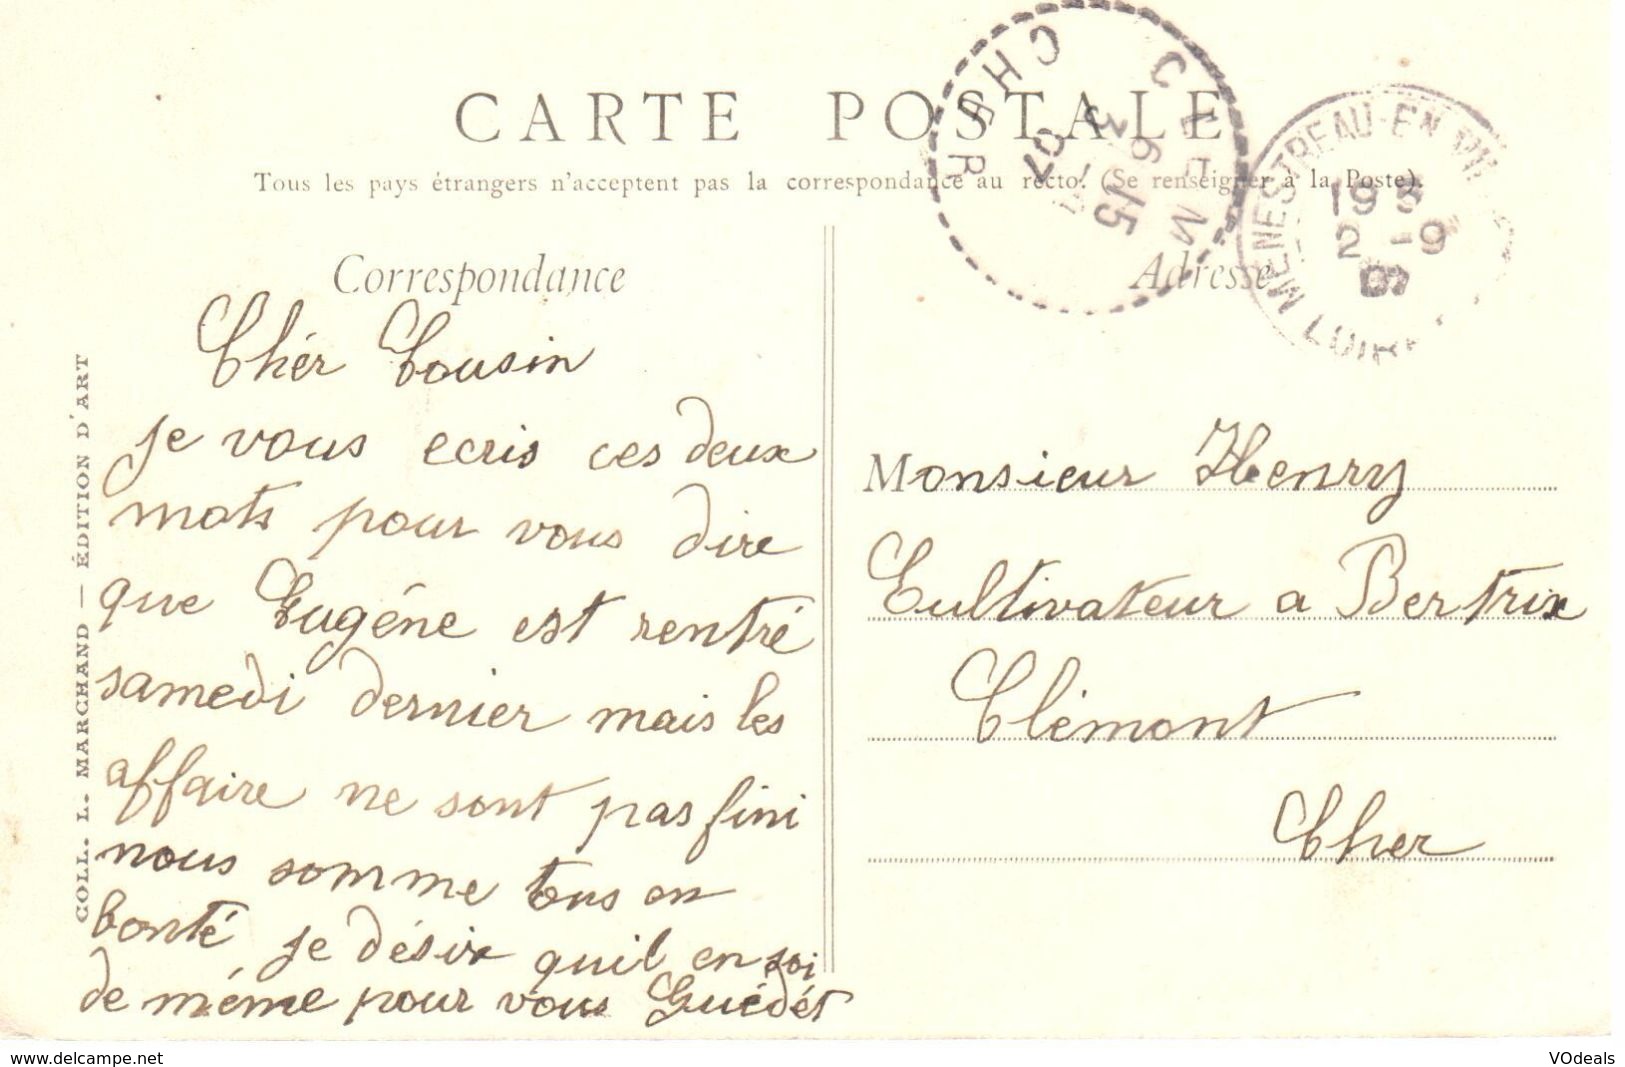 CARTE POSTALE
Tous les pays étrangers n'acceptent pas la correspondance au recto. (Se renseigner à la Poste).
Correspondance
Chér Cousin
je vous ecris ces deux
mots pour vous dire
que Eugéne est rentré
samedi dernier mais les
affaire ne sont pas fini
nous somme tous en
bonté je désire quil en soi
de méme pour vous Guédét
Adresse
Monsieur Henry
Cultivateur a Bertrix
Clémont
Cher
COLL. L. MARCHAND — ÉDITION D'ART
CHER
07
MENESTREAU-EN
2 -9
www.delcampe.net
VOdeals